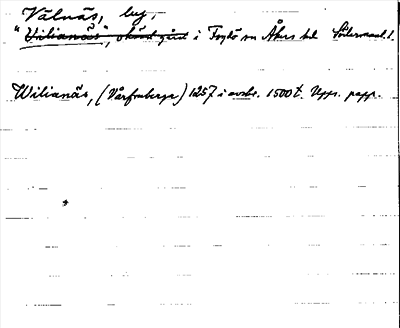 Välnäs, by,
"Vilianäs", okänd gård i Fogdö sn Åkers hd Södermanl.
Wilianäs, (Vårfruberga) 1257 i avskr. 1500t. Upps. papp.